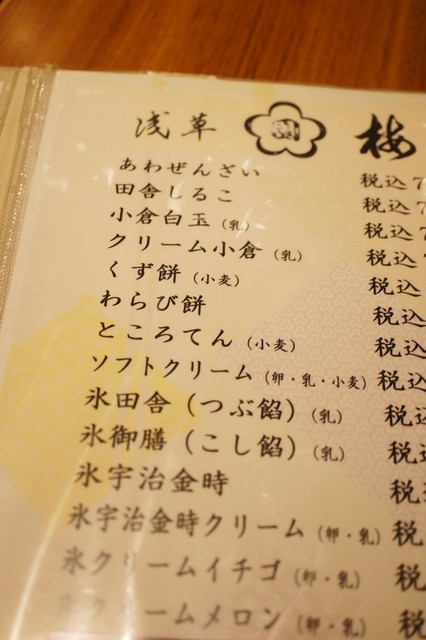 浅草 梅
あわぜんざい 税込7
田舎しるこ 税込7
小倉白玉(乳) 税込7
クリーム小倉(乳) 税込7
くず餅(小麦) 税込
わらび餅 税込
ところてん(小麦) 税込
ソフトクリーム(卵・乳・小麦) 税込
氷田舎(つぶ餡)(乳) 税込
氷御膳(こし餡)(乳) 税込
氷宇治金時 税
氷宇治金時クリーム(卵・乳) 税
氷クリームイチゴ(卵・乳) 税
氷クリームメロン(卵・乳) 税